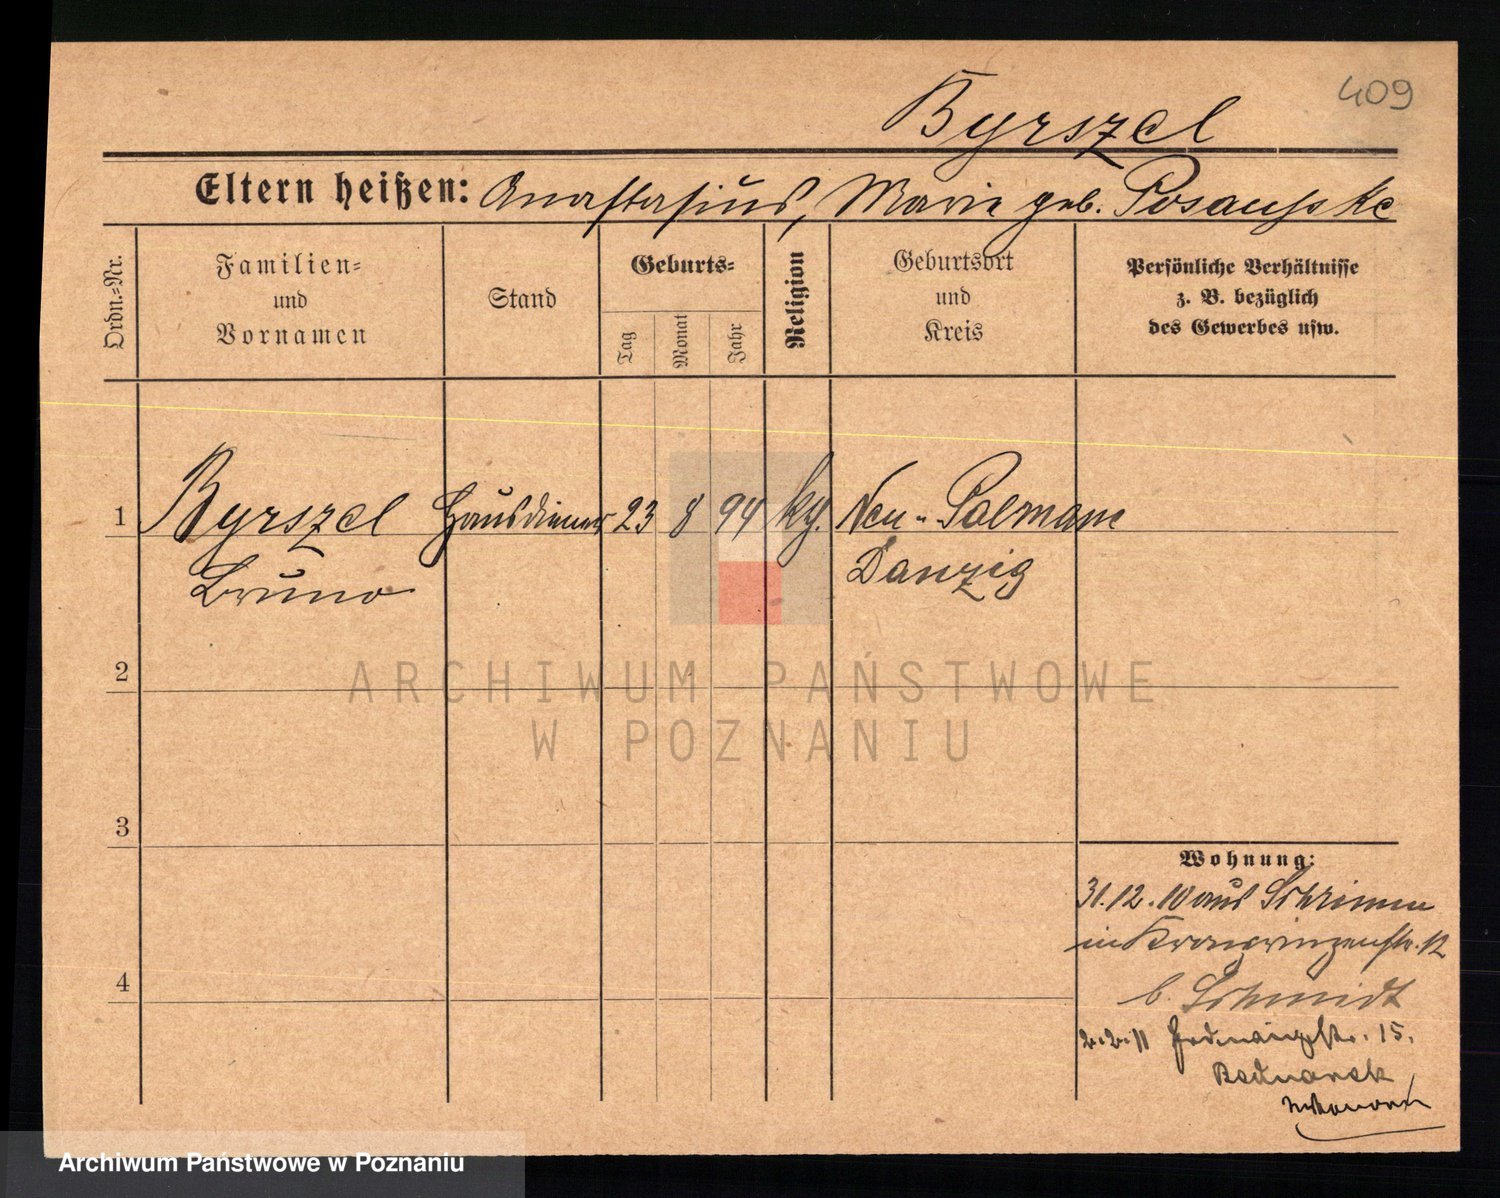 409
Byrszel
Eltern heißen: Anastasius, Marie geb. Posanske
Ordn.-Nr.
Familien-
und
Vornamen
Stand
Geburts-
Tag
Monat
Jahr
Religion
Geburtsort
und
Kreis
Persönliche Verhältnisse
z. B. bezüglich
des Gewerbes usw.
1 Byrszel Hausdiener 23 8 94 kg. Neu-
Bruno Danzig
2
3
4
Wohnung:
31.12.10 aus Schrimm
in Kronprinzenstr. 12
b. Schmidt
2.2.11 15.
Bednarek
ARCHIWUM PAŃSTWOWE
W POZNANIU
Archiwum Państwowe w Poznaniu